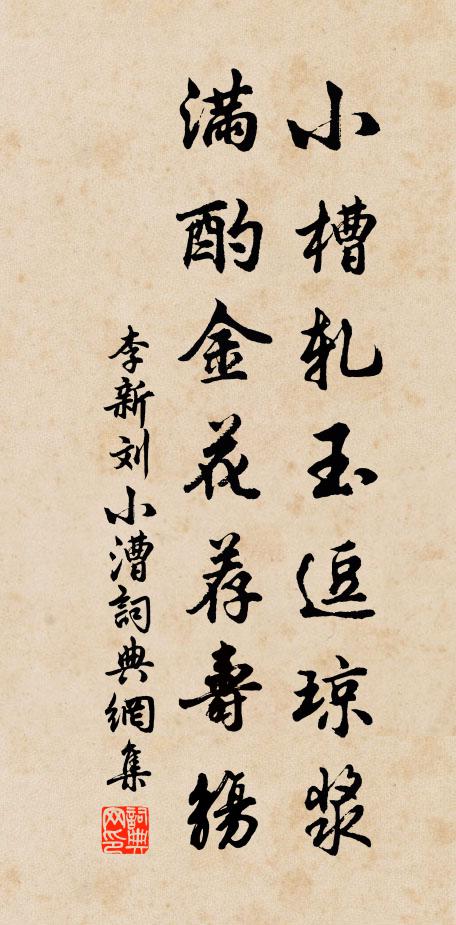 小槽轧玉逗琼浆
满酌金花荐寿觞
李新刘小漕詞典網集
詞典
网印